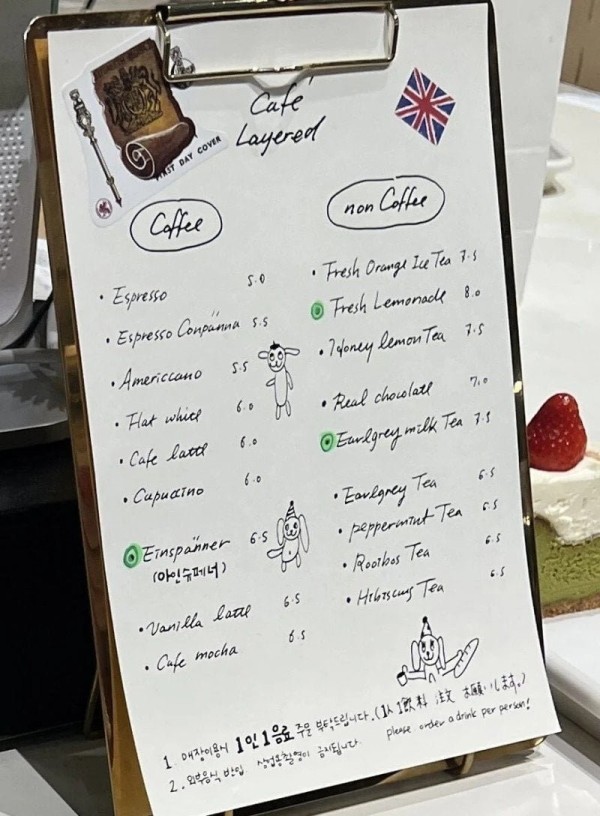 FIRST DAY COVER
Café
Layered
Coffee
• Espresso 5.0
• Espresso Conpänna 5.5
• Americcano 5.5
• Flat white 6.0
• Cafe latte 6.0
• Capuccino 6.0
Einspänner 6.5
(아인슈페너)
• Vanilla latte 6.5
• Cafe mocha 6.5
non Coffee
• Fresh Orange Ice Tea 7.5
Fresh Lemonade 8.0
• Honey lemon Tea 7.5
• Real chocolate 7.0
Earlgrey milk Tea 7.5
• Earlgrey Tea 6.5
• peppermint Tea 6.5
• Rooibos Tea 6.5
• Hibiscus Tea 6.5
1.매장이용시 1인 1음료 주문 부탁드립니다. (1人 1飲料 注文 お願いします。)
please order a drink per person!
2. 외부음식 반입, 상업용촬영이 금지됩니다.